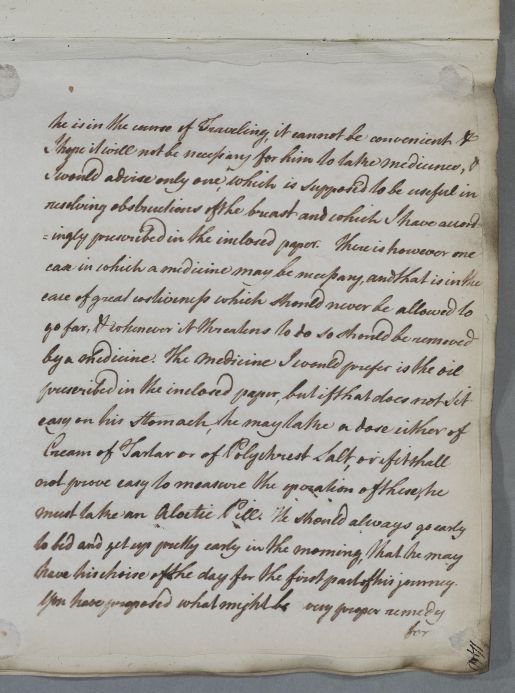 he is in the course of Traveling, it cannot be convenient &
I hope it will not be necessary for him to take medicines, &
I would advise only one, which is supposed to be useful in
resolving obstructions of the breast and which I have accord
=ingly prescribed in the inclosed paper. There is however one
case in which a medicine may be necessary, and that is in the
case of great costiveness which should never be allowed to
go far, & whenever it threatens to do so should be removed
by a medicine. The medicine I would prefer is the oil
prescribed in the inclosed paper, but if that does not sit
easy on his stomach, he may take a dose either of
Cream of Tartar or of Polychrest Salt, or if it shall
not prove easy to measure the operation of these, he
must take an Aloetic Pill. He should always go early
to bed and get up pretty early in the morning, that he may
have his choise of the day for the first part of his journey.
You have proposed what might be very proper remedy
for